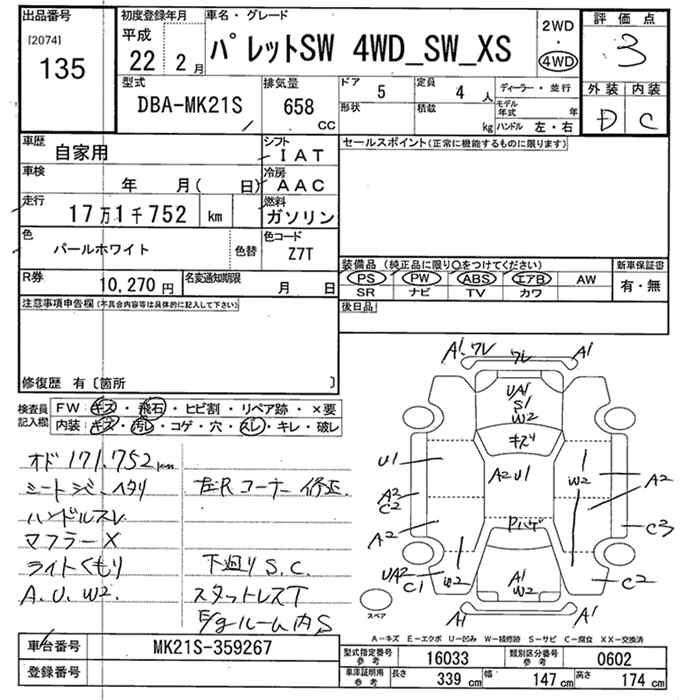 出品番号
[2074]
135
初度登録年月
平成
22年 2月
車名・グレード
パレットSW 4WD_SW_XS
2WD
・
4WD
評価点
3
外装 内装
D C
型式
DBA-MK21S
排気量
658
CC
ドア
5
形状
定員
4人
積載
kg
ディーラー・並行
モデル年式 年
ハンドル 左・右
車歴
自家用
シフト
IAT
車検
年 月( 日)
冷房
AAC
走行
17万1千752 km
燃料
ガソリン
色
パールホワイト
色替
色コード
Z7T
R券
10,270円
名変通知期限
月 日
セールスポイント(正常に機能するものに限ります)
装備品(純正品に限り○をつけてください)
PS PW ABS エアB AW
SR ナビ TV カワ
新車保証書
有・無
後日品
注意事項申告欄(不具合内容等は具体的に記入して下さい)
修復歴 有〔箇所 〕
検査員記入欄
FW:キズ・飛石・ヒビ割・リペア跡・×要
内装:キズ・汚レ・コゲ・穴・スレ・キレ・破レ
オド 171.752km
シートジミ・ヘタリ
ハンドルスレ
マフラーX
ライトくもり
A.U.W2
左R コーナー 修正
下廻り S.C.
スタットレスT
E/gルーム内S
A1 ワレ
ワレ
A1
UA1
S1
W2
キズ
A2 U1
Pハゲ
A1
W2
U1
A2
C2
A2
UA2
C1
W2
W2
A2
C3
C2
A1
A1
スペア
A-キズ E-エクボ U-凹み W-補修跡 S-サビ C-腐食 XX-交換済
車台番号
MK21S-359267
登録番号
型式指定番号
参考
16033
類別区分番号
参考
0602
車庫証明用
参考
長さ
339 cm
幅
147 cm
高さ
174 cm